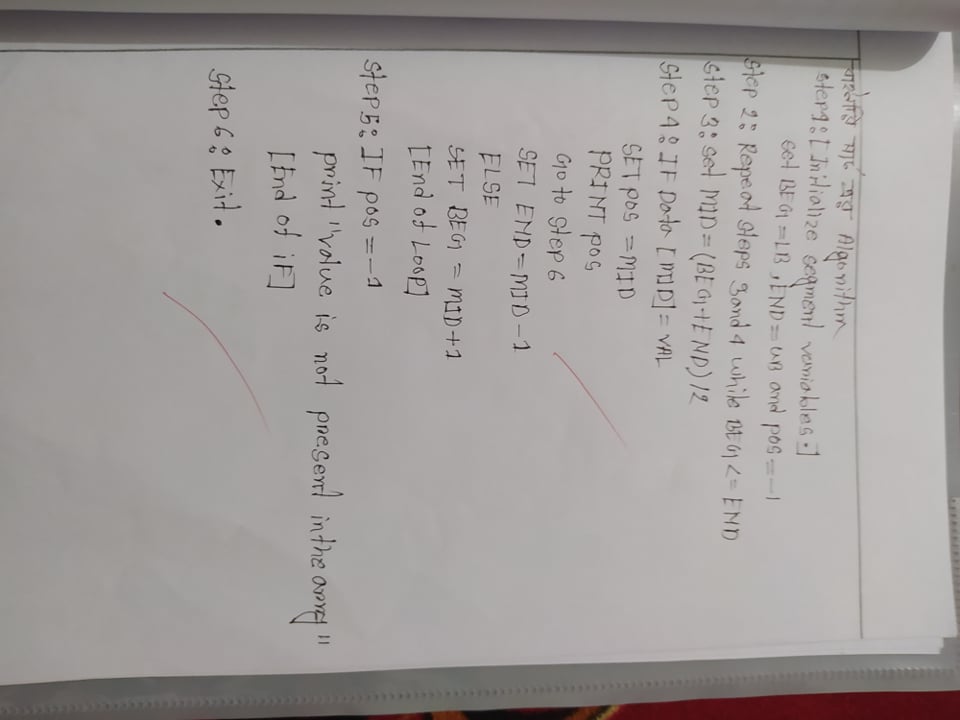 বাইনারি সার্চ এর Algorithm
Step1:[Initialize segment variables.]
set BEG=LB, END=UB and pos=-1
Step 2: Repeat steps 3and 4 while BEG<=END
Step 3: set MID=(BEG+END)/2
Step4: IF Data [MID]=VAL
SET pos=MID
PRINT pos
Go to step 6
SET END=MID-1
ELSE
SET BEG=MID+1
[End of Loop]
Step5: IF pos=-1
print "value is not present inthe array"
[End of iF]
Step 6: Exit.